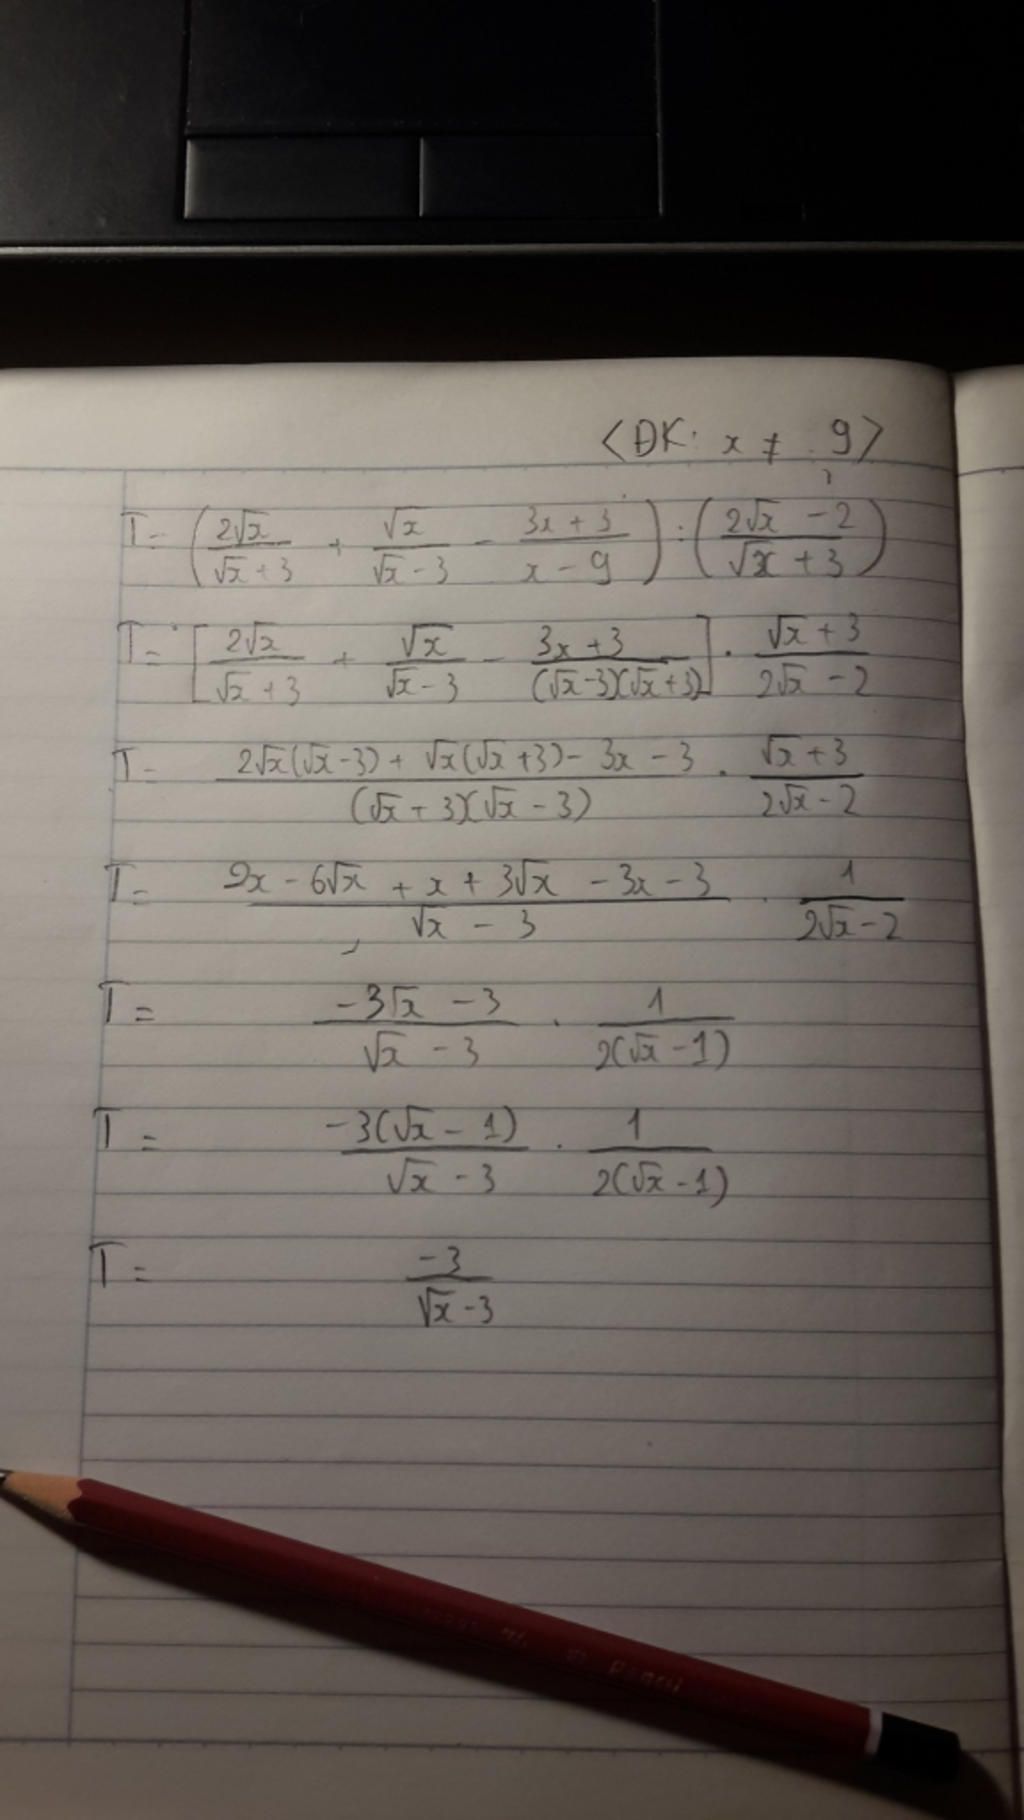 <ĐK: x ≠ 9>
T = (2√x/(√x + 3) + √x/(√x - 3) - (3x + 3)/(x - 9)) : ((2√x - 2)/(√x + 3))
T = [2√x/(√x + 3) + √x/(√x - 3) - (3x + 3)/((√x - 3)(√x + 3))] . (√x + 3)/(2√x - 2)
T = (2√x(√x - 3) + √x(√x + 3) - 3x - 3)/((√x + 3)(√x - 3)) . (√x + 3)/(2√x - 2)
T = (2x - 6√x + x + 3√x - 3x - 3)/(√x - 3) . 1/(2√x - 2)
T = (-3√x - 3)/(√x - 3) . 1/(2(√x - 1))
T = (-3(√x - 1))/(√x - 3) . 1/(2(√x - 1))
T = -3/(√x - 3)
Pencil